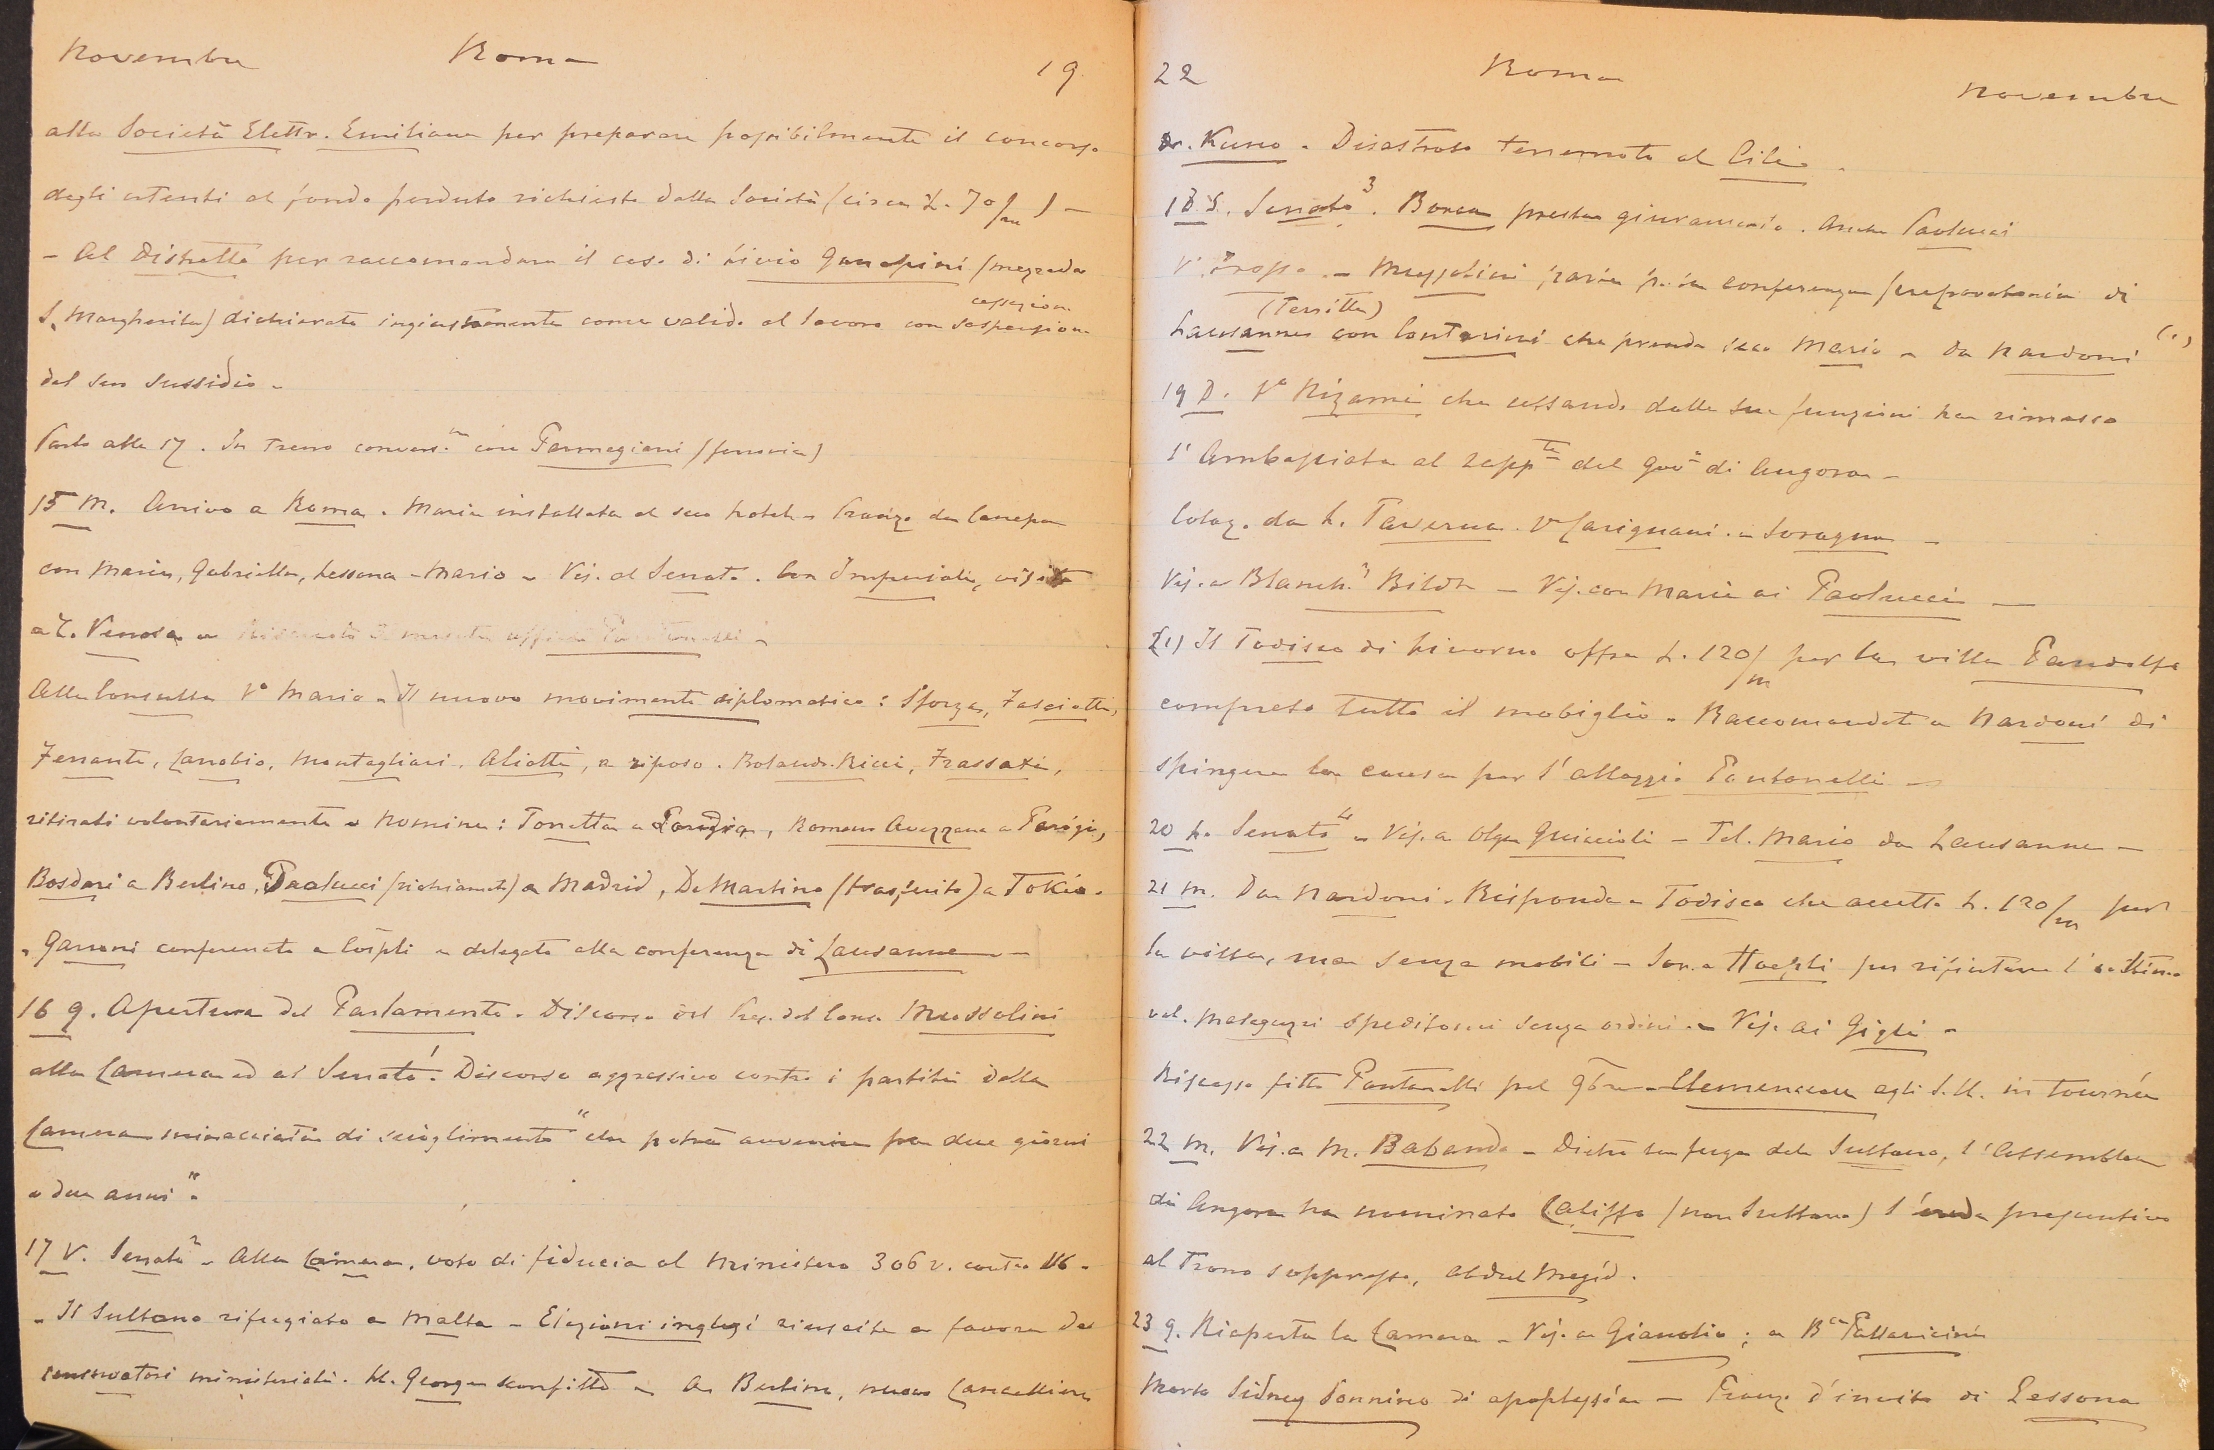 Novembre Roma 19
alla Società Elettr. Emiliana per preparare possibilmente il concorso
degli utenti al fondo perduto richiesto dalla Società (circa L. 70/m) —
- Al Distretto per raccomandare il caso di Livio (mezzadro
cessazione
S. Margherita) dichiarato ingiustamente come valido al lavoro con sospensione
del suo sussidio -
Parto alle 17. In treno convers.ne con Parmegiani (ferrovia)
15 M. Arrivo a Roma. Maria installata al suo hotel - Pranzo da Canepa
con Maria, Gabriella, Lessona - Mario - Vis. al Senato. Con Imperiali, visita
a Z. Venosa
Alla Consulta V° Mario - Il nuovo movimento diplomatico: Sforza, Fasciotti,
Ferrante, Cambio, Montagliari, Aliotti, a riposo. Rolando-Ricci, Frassati,
ritirati volontariamente - Nomine: Torretta a Londra, Romano Avezzana a Parigi,
Bosdari a Berlino, Paolucci (richiamato) a Madrid, De Martino (trasferito) a Tokio.
- Garroni confermato a Cospli e delegato alla conferenza di Lausanne —
16 g. Apertura del Parlamento. Discorso del Pres. del Cons. Mussolini
alla Camera ed al Senato.1 Discorso aggressivo contro i partiti della
Camera minacciata di scioglimento "che potrà avvenire fra due giorni
o due anni".
17 V. Senato2 - Alla Camera, voto di fiducia al Ministero 306 v. contro 116 -
- Il Sultano rifugiato a Malta - Elezioni inglesi riuscite a favore dei
conservatori ministeriali. Ll. George sconfitto - A Berlino, nuovo Cancelliere
22 Roma Novembre
Dr. Kuno. Disastroso terremoto al Cile.
18 S. Senato3. Borea presta giuramento. Anche Paolucci
V. Grosso. - Mussolini parte p. la conferenza preparatoria di
(Territet)
Lausanne con Contarini che prende seco Mario - Da Nardoni (1)
19 D. V° Nizamè che cessando dalle sue funzioni ha rimesso
l'Ambasciata al rappte del Govo di Angora -
Colaz. da L. Taverna. Vo Carignani. a Soragna -
Vis. a Blanch. Bildt - Vis. con Maria ai Paolucci —
(1) Il Todisco di Livorno offre L. 120/m per la villa Pandolfa
compreso tutto il mobiglio - Raccomandato a Nardoni di
spingere la causa per l'alloggio Pantanelli -
20 L. Senato4 - Vis. a Olga Guiccioli - Tel. Mario da Lausanne -
21 M. Da Nardoni. Rispondo a Todisco che accetto L. 120/m per
la villa, ma senza mobili - Scr. a Hoepli per rifiutare l'ottimo
vol. Malaguzzi speditomi senza ordini. - Vis. ai Gigli -
Riscosso fitto Pantanelli pel 9bre - Clemenceau agli S.U. in tournée
22 M. Vis. a M. Babanda - Dietro la fuga del Sultano, l'Assemblea
di Angora ha nominato Califfo (non Sultano) l'erede presuntivo
al trono soppresso, Abdul Megid.
23 g. Riaperta la Camera - Vis. a Gianotti; a Bna Pallavicini
Morto Sidney Sonnino di apoplessia — Pranzo d'invito di Lessona